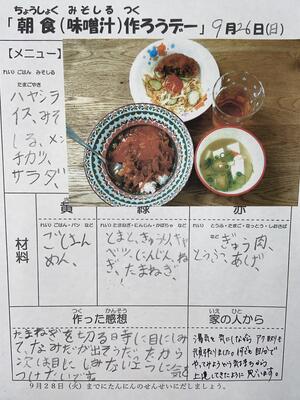 ちょうしょく みそしる つく
「朝食(味噌汁)作ろうデー」 9月26日(日)
【メニュー】
れい)ごはん みそしる
たまごやき
ハヤシラ
イス、みそ
しる、メン
チカツ、
サラダ、
黄 緑 赤
材料
れい)ごはん・パン など
ごとえん
めん、
れい)たまねぎ・にんじん・かぼちゃ など
トマト、きゅうり、キャ
ベツ、にんじん、ねぎ、
たまねぎ、
れい)とうふ・たまご・なっとう・しおさば
など
ぎゅう肉、
とうふ、あぶらあげ、
つく かんそう
作った感想
たまねぎを切る時に目にしみ
て、なみだが出そうだったから
次は目にしみないように気を
つけたいです。
いえ ひと
家の人から
湯気を気にしながら アク取りも
頑張りました。
9月28日(火)までにたんにんのせんせいにだしましょう。